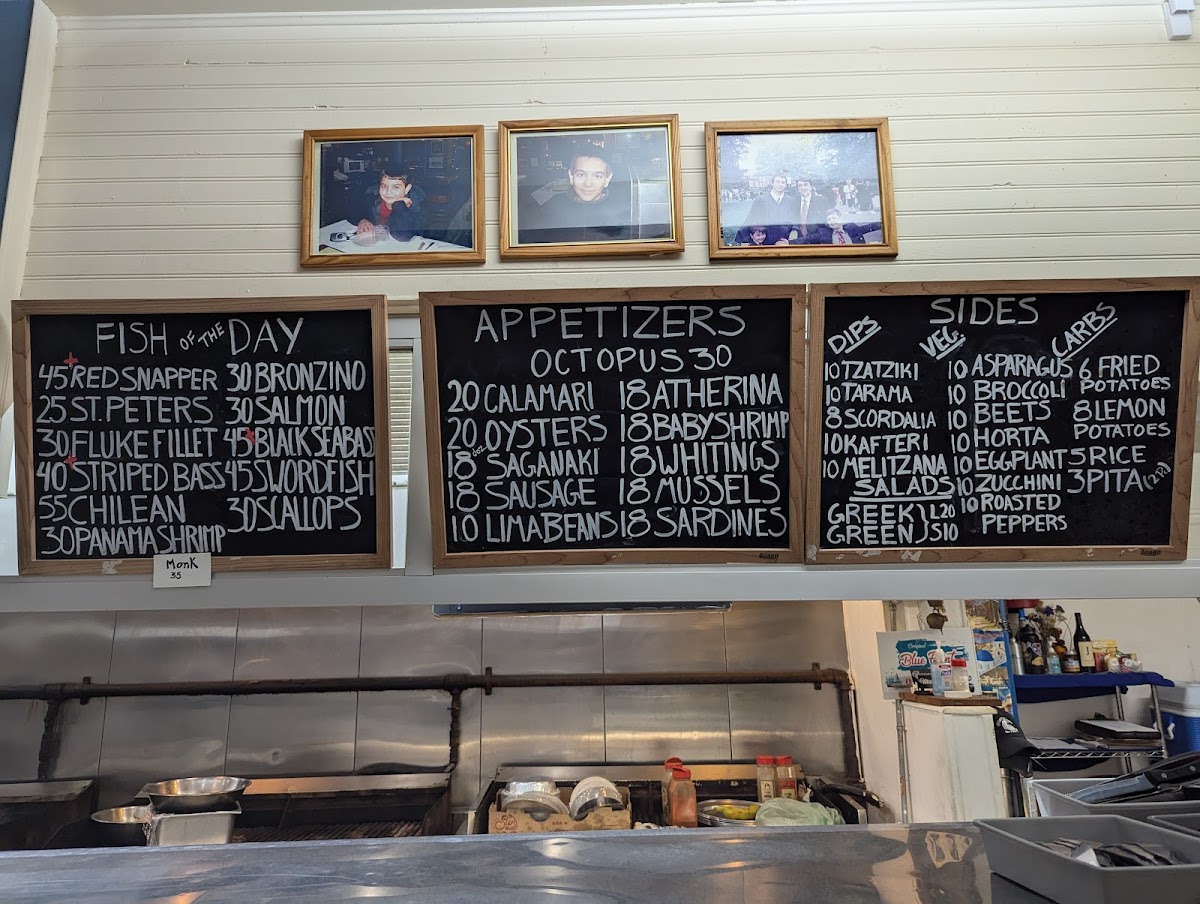 FISH OF THE DAY
45 RED SNAPPER 30 BRONZINO
25 ST. PETERS 30 SALMON
30 FLUKE FILLET 45 BLACK SEABASS
40 STRIPED BASS 45 SWORDFISH
55 CHILEAN 30 SCALLOPS
30 PANAMA SHRIMP
MonK
35
APPETIZERS
OCTOPUS 30
20 CALAMARI 18 ATHERINA
20 OYSTERS 18 BABYSHRIMP
18 SAGANAKI 18 WHITINGS
18 SAUSAGE 18 MUSSELS
10 LIMABEANS 18 SARDINES
SIDES
DIPS
10 TZATZIKI
10 TARAMA
8 SCORDALIA
10 KAFTERI
10 MELITZANA
SALADS
GREEK } L20
GREEN } S10
VEG.
10 ASPARAGUS
10 BROCCOLI
10 BEETS
10 HORTA
10 EGGPLANT
10 ZUCCHINI
10 ROASTED
PEPPERS
CARBS
6 FRIED
POTATOES
8 LEMON
POTATOES
5 RICE
3 PITA (2 PJ)
Original
Blue